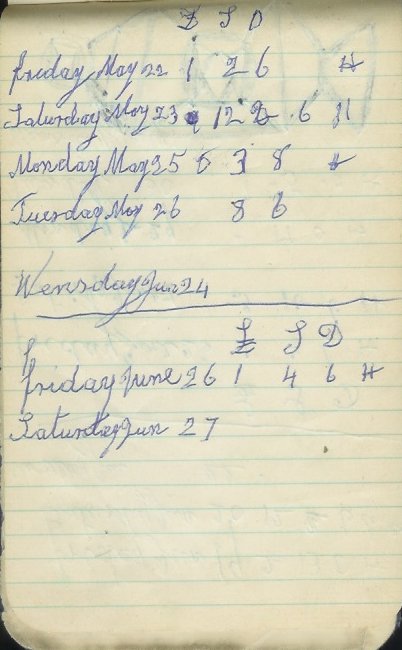 £ S D
Friday May 22 1 2 6 H
Saturday May 23 12 6 H
Monday May 25 5 3 8 H
Tuesday May 26 8 6
Wensday Jun 24
£ S D
Friday June 26 1 4 6 H
Saturday Jun 27